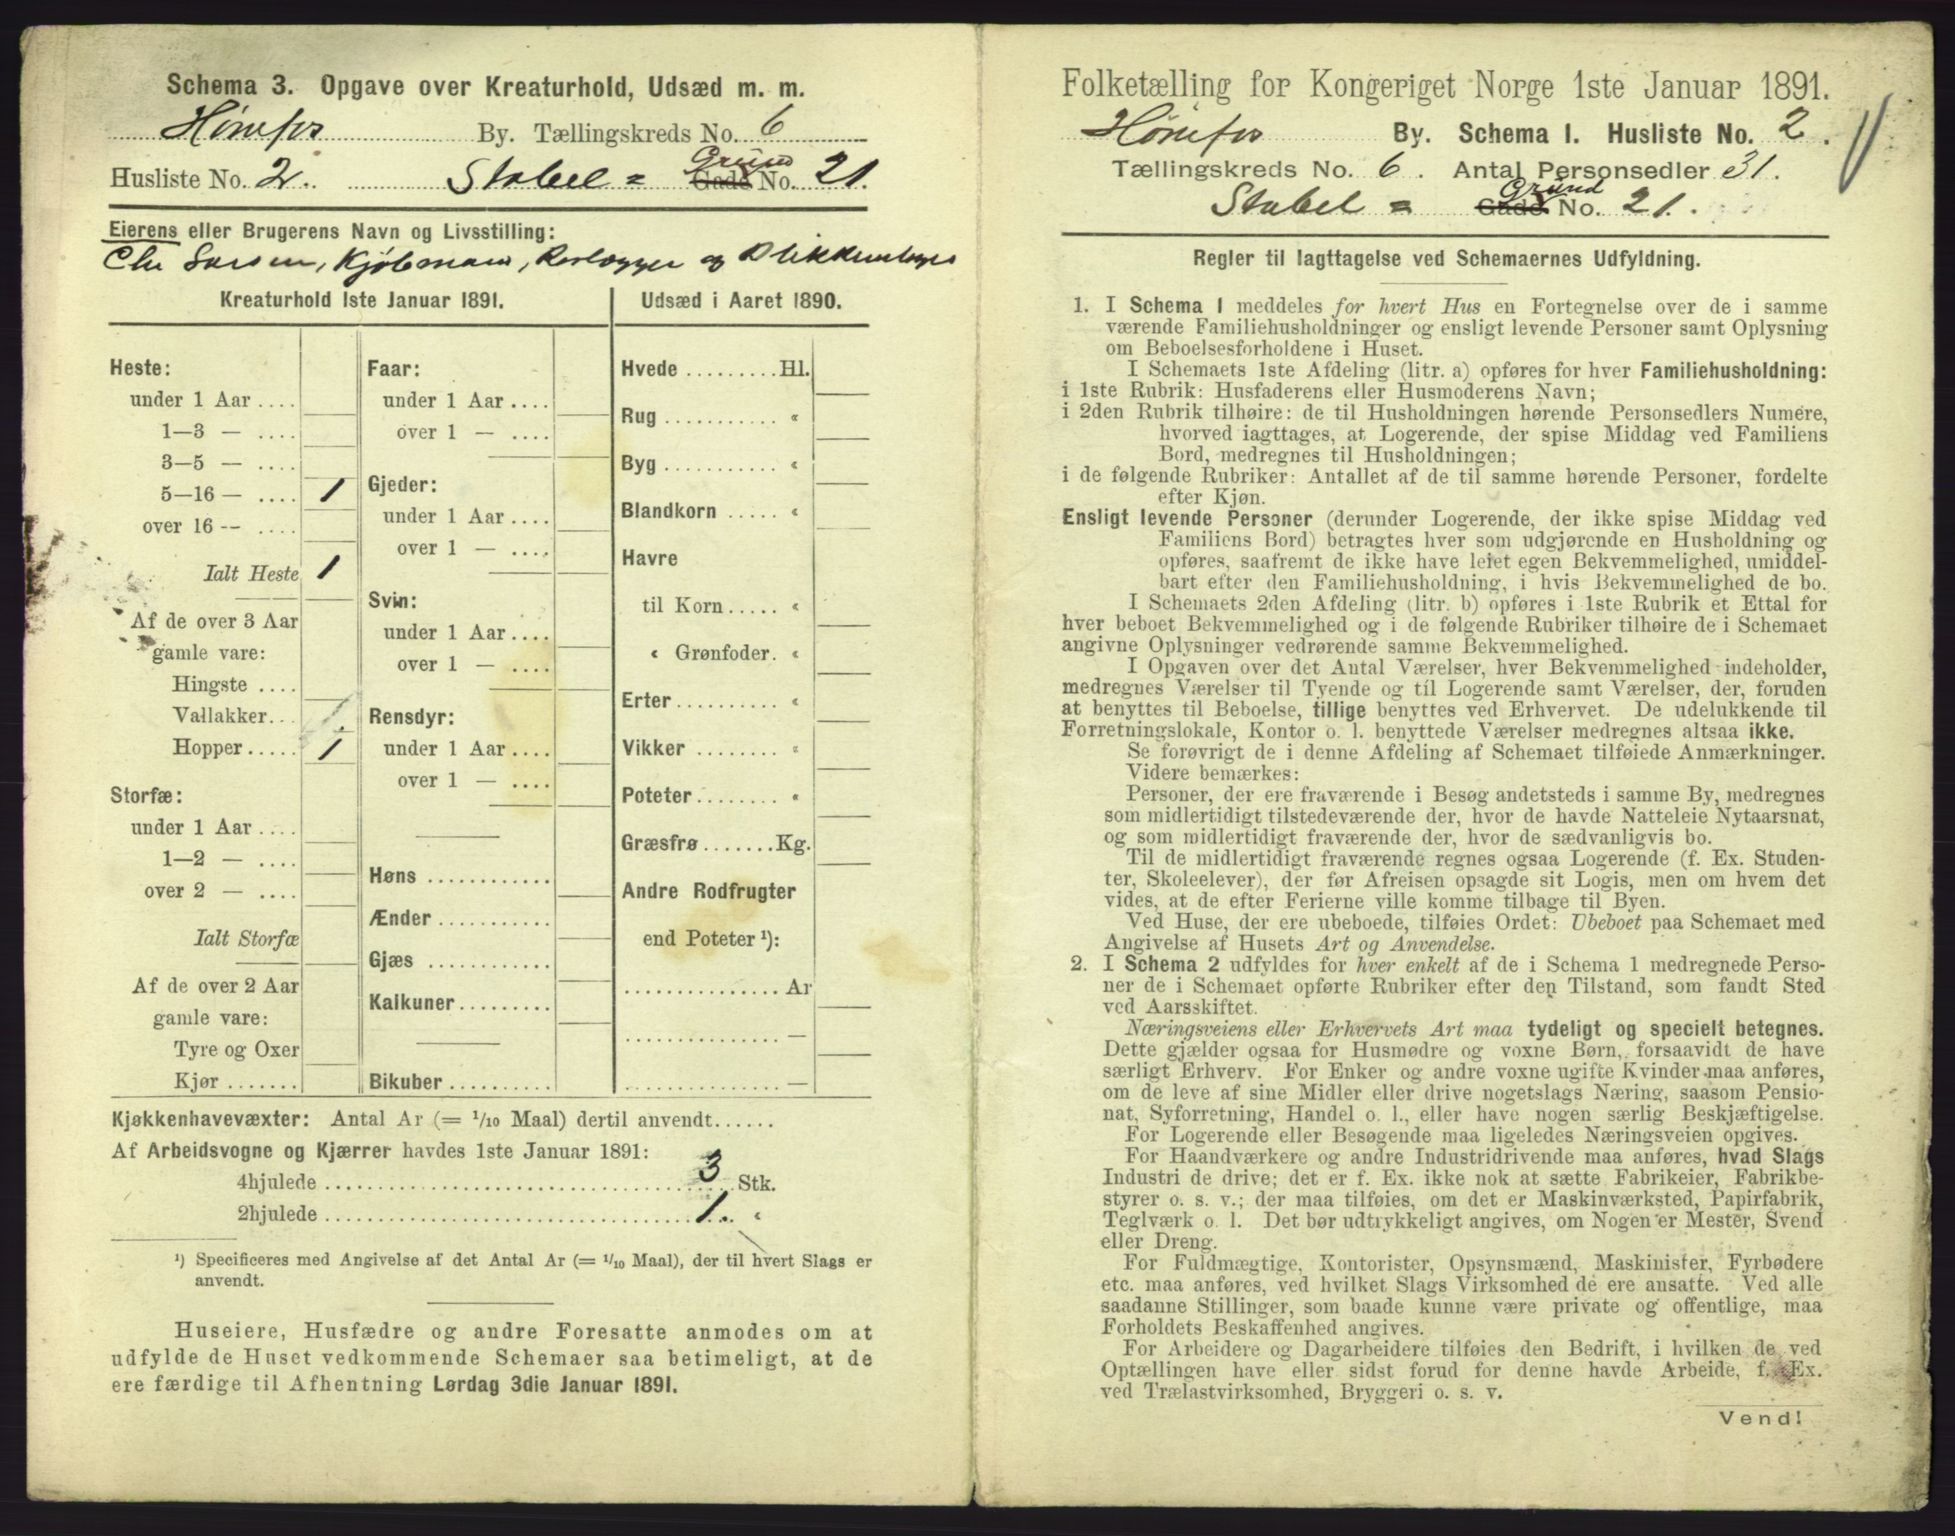 Schema 3. Opgave over Kreaturhold, Udsæd m. m.
Hønefos By. Tællingskreds No. 6
Husliste No. 2. Stabel = Grund Gade No. 21.
Eierens eller Brugerens Navn og Livsstilling:
Chr Larsen, Kjøbmand, og
Kreaturhold 1ste Januar 1891.
Heste:
under 1 Aar ....
1—3 — ....
3—5 — ....
5—16 — .... 1
over 16 — ....
Ialt Heste 1
Af de over 3 Aar
gamle vare:
Hingste ....
Vallakker...
Hopper ..... 1
Storfæ:
under 1 Aar ....
1—2 — ....
over 2 — ....
Ialt Storfæ
Af de over 2 Aar
gamle vare:
Tyre og Oxer
Kjør .......
Faar:
under 1 Aar ....
over 1 — ....
Gjeder:
under 1 Aar ....
over 1 — ....
Svin:
under 1 Aar ....
over 1 — ....
Rensdyr:
under 1 Aar ....
over 1 — ....
Høns ............
Ænder ...........
Gjæs ............
Kalkuner .........
Bikuber ..........
Udsæd i Aaret 1890.
Hvede ......... Hl.
Rug ........... «
Byg ........... «
Blandkorn ..... «
Havre
til Korn ..... «
« Grønfoder. «
Erter .......... «
Vikker ......... «
Poteter ........ «
Græsfrø ....... Kg.
Andre Rodfrugter
end Poteter ¹):
............... Ar
............... —
............... —
Kjøkkenhavevæxter: Antal Ar (= 1/10 Maal) dertil anvendt......
Af Arbeidsvogne og Kjærrer havdes 1ste Januar 1891:
4hjulede .................... 3 Stk.
2hjulede .................... 1. «
¹) Specificeres med Angivelse af det Antal Ar (= 1/10 Maal), der til hvert Slags er
anvendt.
Huseiere, Husfædre og andre Foresatte anmodes om at
udfylde de Huset vedkommende Schemaer saa betimeligt, at de
ere færdige til Afhentning Lørdag 3die Januar 1891.
Folketælling for Kongeriget Norge 1ste Januar 1891.
Hønefos By. Schema 1. Husliste No. 2.
Tællingskreds No. 6. Antal Personsedler 31.
Stabel = Grund Gade No. 21.
Regler til Iagttagelse ved Schemaernes Udfyldning.
1. I Schema 1 meddeles for hvert Hus en Fortegnelse over de i samme
værende Familiehusholdninger og ensligt levende Personer samt Oplysning
om Beboelsesforholdene i Huset.
I Schemaets 1ste Afdeling (litr. a) opføres for hver Familiehusholdning:
i 1ste Rubrik: Husfaderens eller Husmoderens Navn;
i 2den Rubrik tilhøire: de til Husholdningen hørende Personsedlers Numere,
hvorved iagttages, at Logerende, der spise Middag ved Familiens
Bord, medregnes til Husholdningen;
i de følgende Rubriker: Antallet af de til samme hørende Personer, fordelte
efter Kjøn.
Ensligt levende Personer (derunder Logerende, der ikke spise Middag ved
Familiens Bord) betragtes hver som udgjørende en Husholdning og
opføres, saafremt de ikke have leiet egen Bekvemmelighed, umiddel-
bart efter den Familiehusholdning, i hvis Bekvemmelighed de bo.
I Schemaets 2den Afdeling (litr. b) opføres i 1ste Rubrik et Ettal for
hver beboet Bekvemmelighed og i de følgende Rubriker tilhøire de i Schemaet
angivne Oplysninger vedrørende samme Bekvemmelighed.
I Opgaven over det Antal Værelser, hver Bekvemmelighed indeholder,
medregnes Værelser til Tyende og til Logerende samt Værelser, der, foruden
at benyttes til Beboelse, tillige benyttes ved Erhvervet. De udelukkende til
Forretningslokale, Kontor o. l. benyttede Værelser medregnes altsaa ikke.
Se forøvrigt de i denne Afdeling af Schemaet tilføiede Anmærkninger.
Videre bemærkes:
Personer, der ere fraværende i Besøg andetsteds i samme By, medregnes
som midlertidigt tilstedeværende der, hvor de havde Natteleie Nytaarsnat,
og som midlertidigt fraværende der, hvor de sædvanligvis bo.
Til de midlertidigt fraværende regnes ogsaa Logerende (f. Ex. Studen-
ter, Skoleelever), der før Afreisen opsagde sit Logis, men om hvem det
vides, at de efter Ferierne ville komme tilbage til Byen.
Ved Huse, der ere ubeboede, tilføies Ordet: Ubeboet paa Schemaet med
Angivelse af Husets Art og Anvendelse.
2. I Schema 2 udfyldes for hver enkelt af de i Schema 1 medregnede Perso-
ner de i Schemaet opførte Rubriker efter den Tilstand, som fandt Sted
ved Aarsskiftet.
Næringsveiens eller Erhvervets Art maa tydeligt og specielt betegnes.
Dette gjælder ogsaa for Husmødre og voxne Børn, forsaavidt de have
særligt Erhverv. For Enker og andre voxne ugifte Kvinder maa anføres,
om de leve af sine Midler eller drive nogetslags Næring, saasom Pensio-
nat, Syforretning, Handel o. l., eller have nogen særlig Beskjæftigelse.
For Logerende eller Besøgende maa ligeledes Næringsveien opgives.
For Haandværkere og andre Industridrivende maa anføres, hvad Slags
Industri de drive; det er f. Ex. ikke nok at sætte Fabrikeier, Fabrikbe-
styrer o. s. v.; der maa tilføies, om det er Maskinværksted, Papirfabrik,
Teglværk o. l. Det bør udtrykkeligt angives, om Nogen er Mester, Svend
eller Dreng.
For Fuldmægtige, Kontorister, Opsynsmænd, Maskinister, Fyrbødere
etc. maa anføres, ved hvilket Slags Virksomhed de ere ansatte. Ved alle
saadanne Stillinger, som baade kunne være private og offentlige, maa
Forholdets Beskaffenhed angives.
For Arbeidere og Dagarbeidere tilføies den Bedrift, i hvilken de ved
Optællingen have eller sidst forud for denne havde Arbeide, f. Ex.
ved Trælastvirksomhed, Bryggeri o. s. v.
Vend!